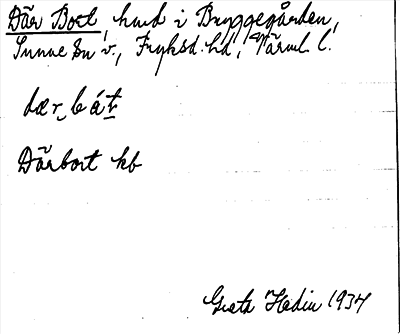 Där Bort, hmd i Bryggegården,
Sunne sn v., Fryksd. hd, Värml. l.
dær, bo᷄t
Därbort kb
Greta Hedin 1934